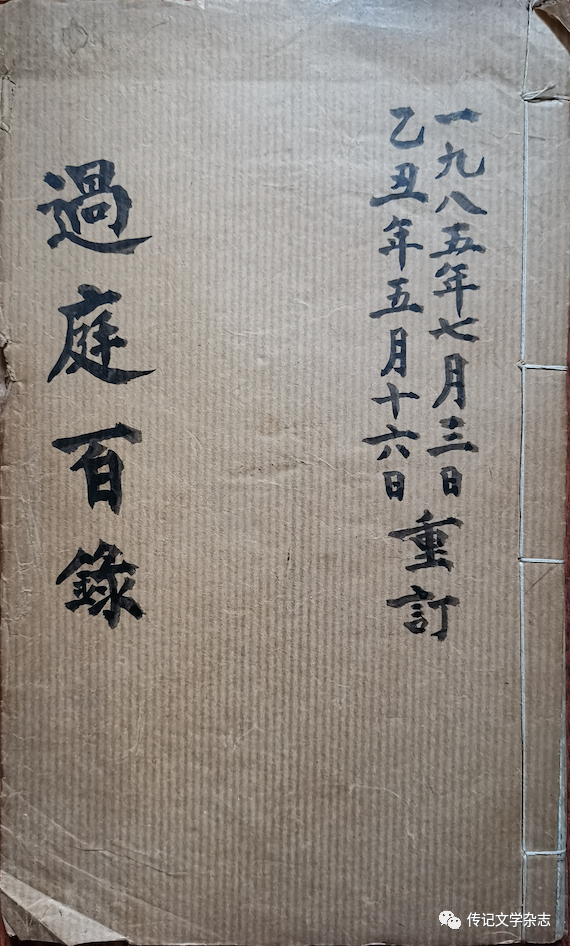 一九八五年七月三日
乙丑年五月十六日
重訂
過庭百錄
传记文学杂志